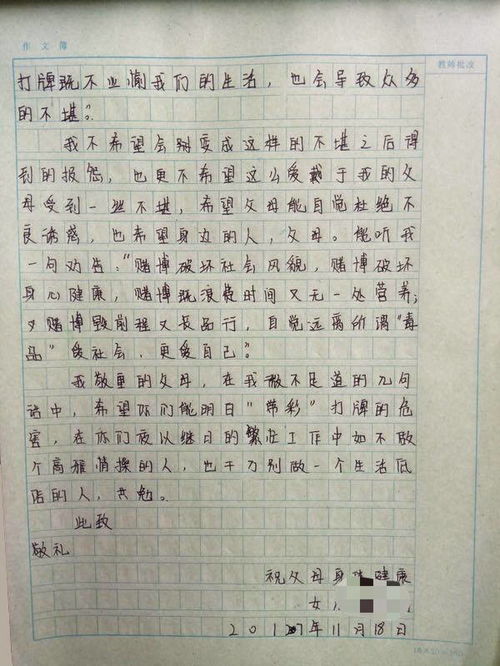 作文簿
教师批改
打牌既不业澜我们的生活，也会导致众多
的不堪。"
我不希望会到变成这样的不堪之后得
到的报怨，也更不希望这么爱戴于我的父
母受到一些不堪，希望父母能自觉杜绝不
良诱惑，也希望身边的人，父母。能听我
一句劝告："赌博破坏社会风貌，赌博破坏
身心健康，赌博既浪费时间又无一处营养；
又赌博毁前程又长品行，自觉远离所谓"毒
品"爱社会，更爱自己"。
我敬重的父母，在我微不足道的几句
话中，希望你们能明白"带彩"打牌的危
害，在你们夜以继日的繁忙工作中如不做
个高雅情操的人，也千万别做一个生活低
俗的人，共勉。
此致
敬礼
祝父母身体健康
女
2017年11月18日